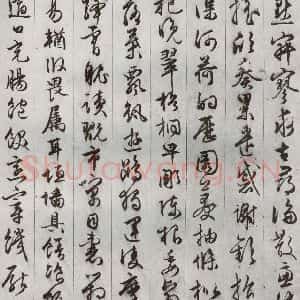 默寂寥求古尋論散慮逍
遙欣奏累遣慼謝歡招
渠荷的歷園莽抽條枇
杷晚翠梧桐早凋陳根委
落葉飄颻遊鵾獨運凌摩
絳霄耽讀翫市寓目囊箱
易輶攸畏屬耳垣牆具膳飡
適口充腸飽飫烹宰饑厭
Shufawang.CN